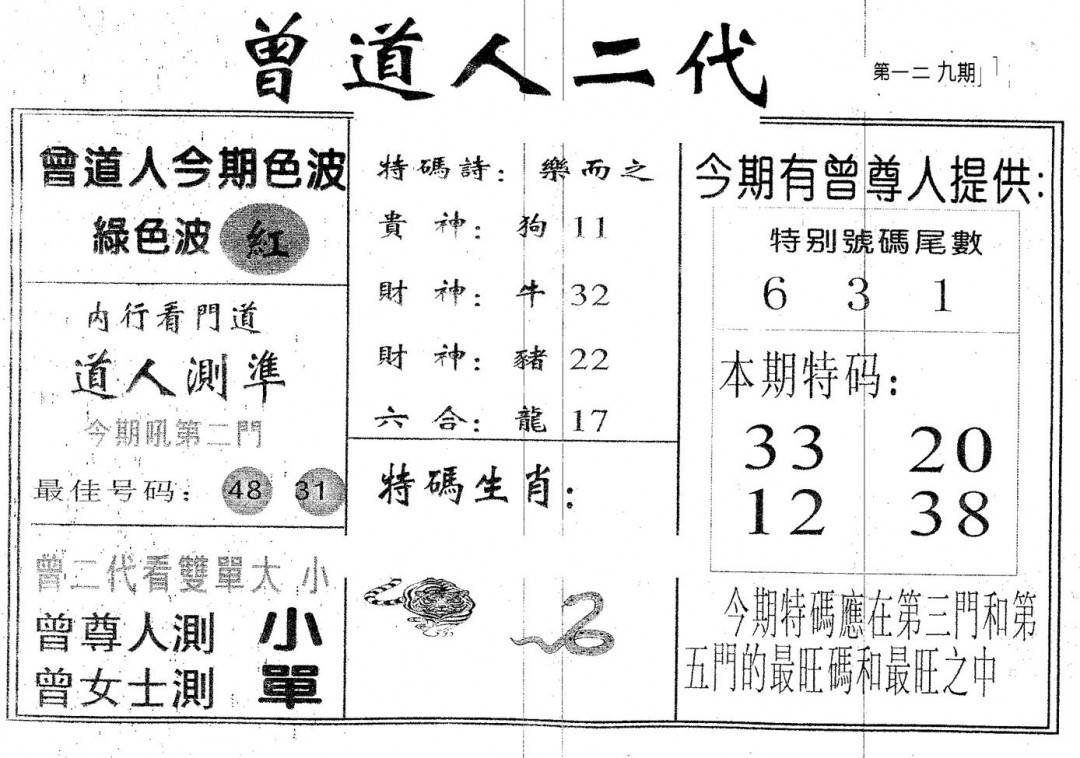 曾道人二代
第一二九期
曾道人今期色波
綠色波 紅
内行看門道
道人測準
今期吼第二門
最佳号码： 48 31
曾二代看雙單大 小
曾尊人測 小
曾女士測 單
特碼詩： 樂而之
貴神： 狗 11
財神： 牛 32
財神： 豬 22
六合： 龍 17
特碼生肖：
今期有曾尊人提供：
特别號碼尾數
6 3 1
本期特码：
33 20
12 38
今期特碼應在第三門和第
五門的最旺碼和最旺之中